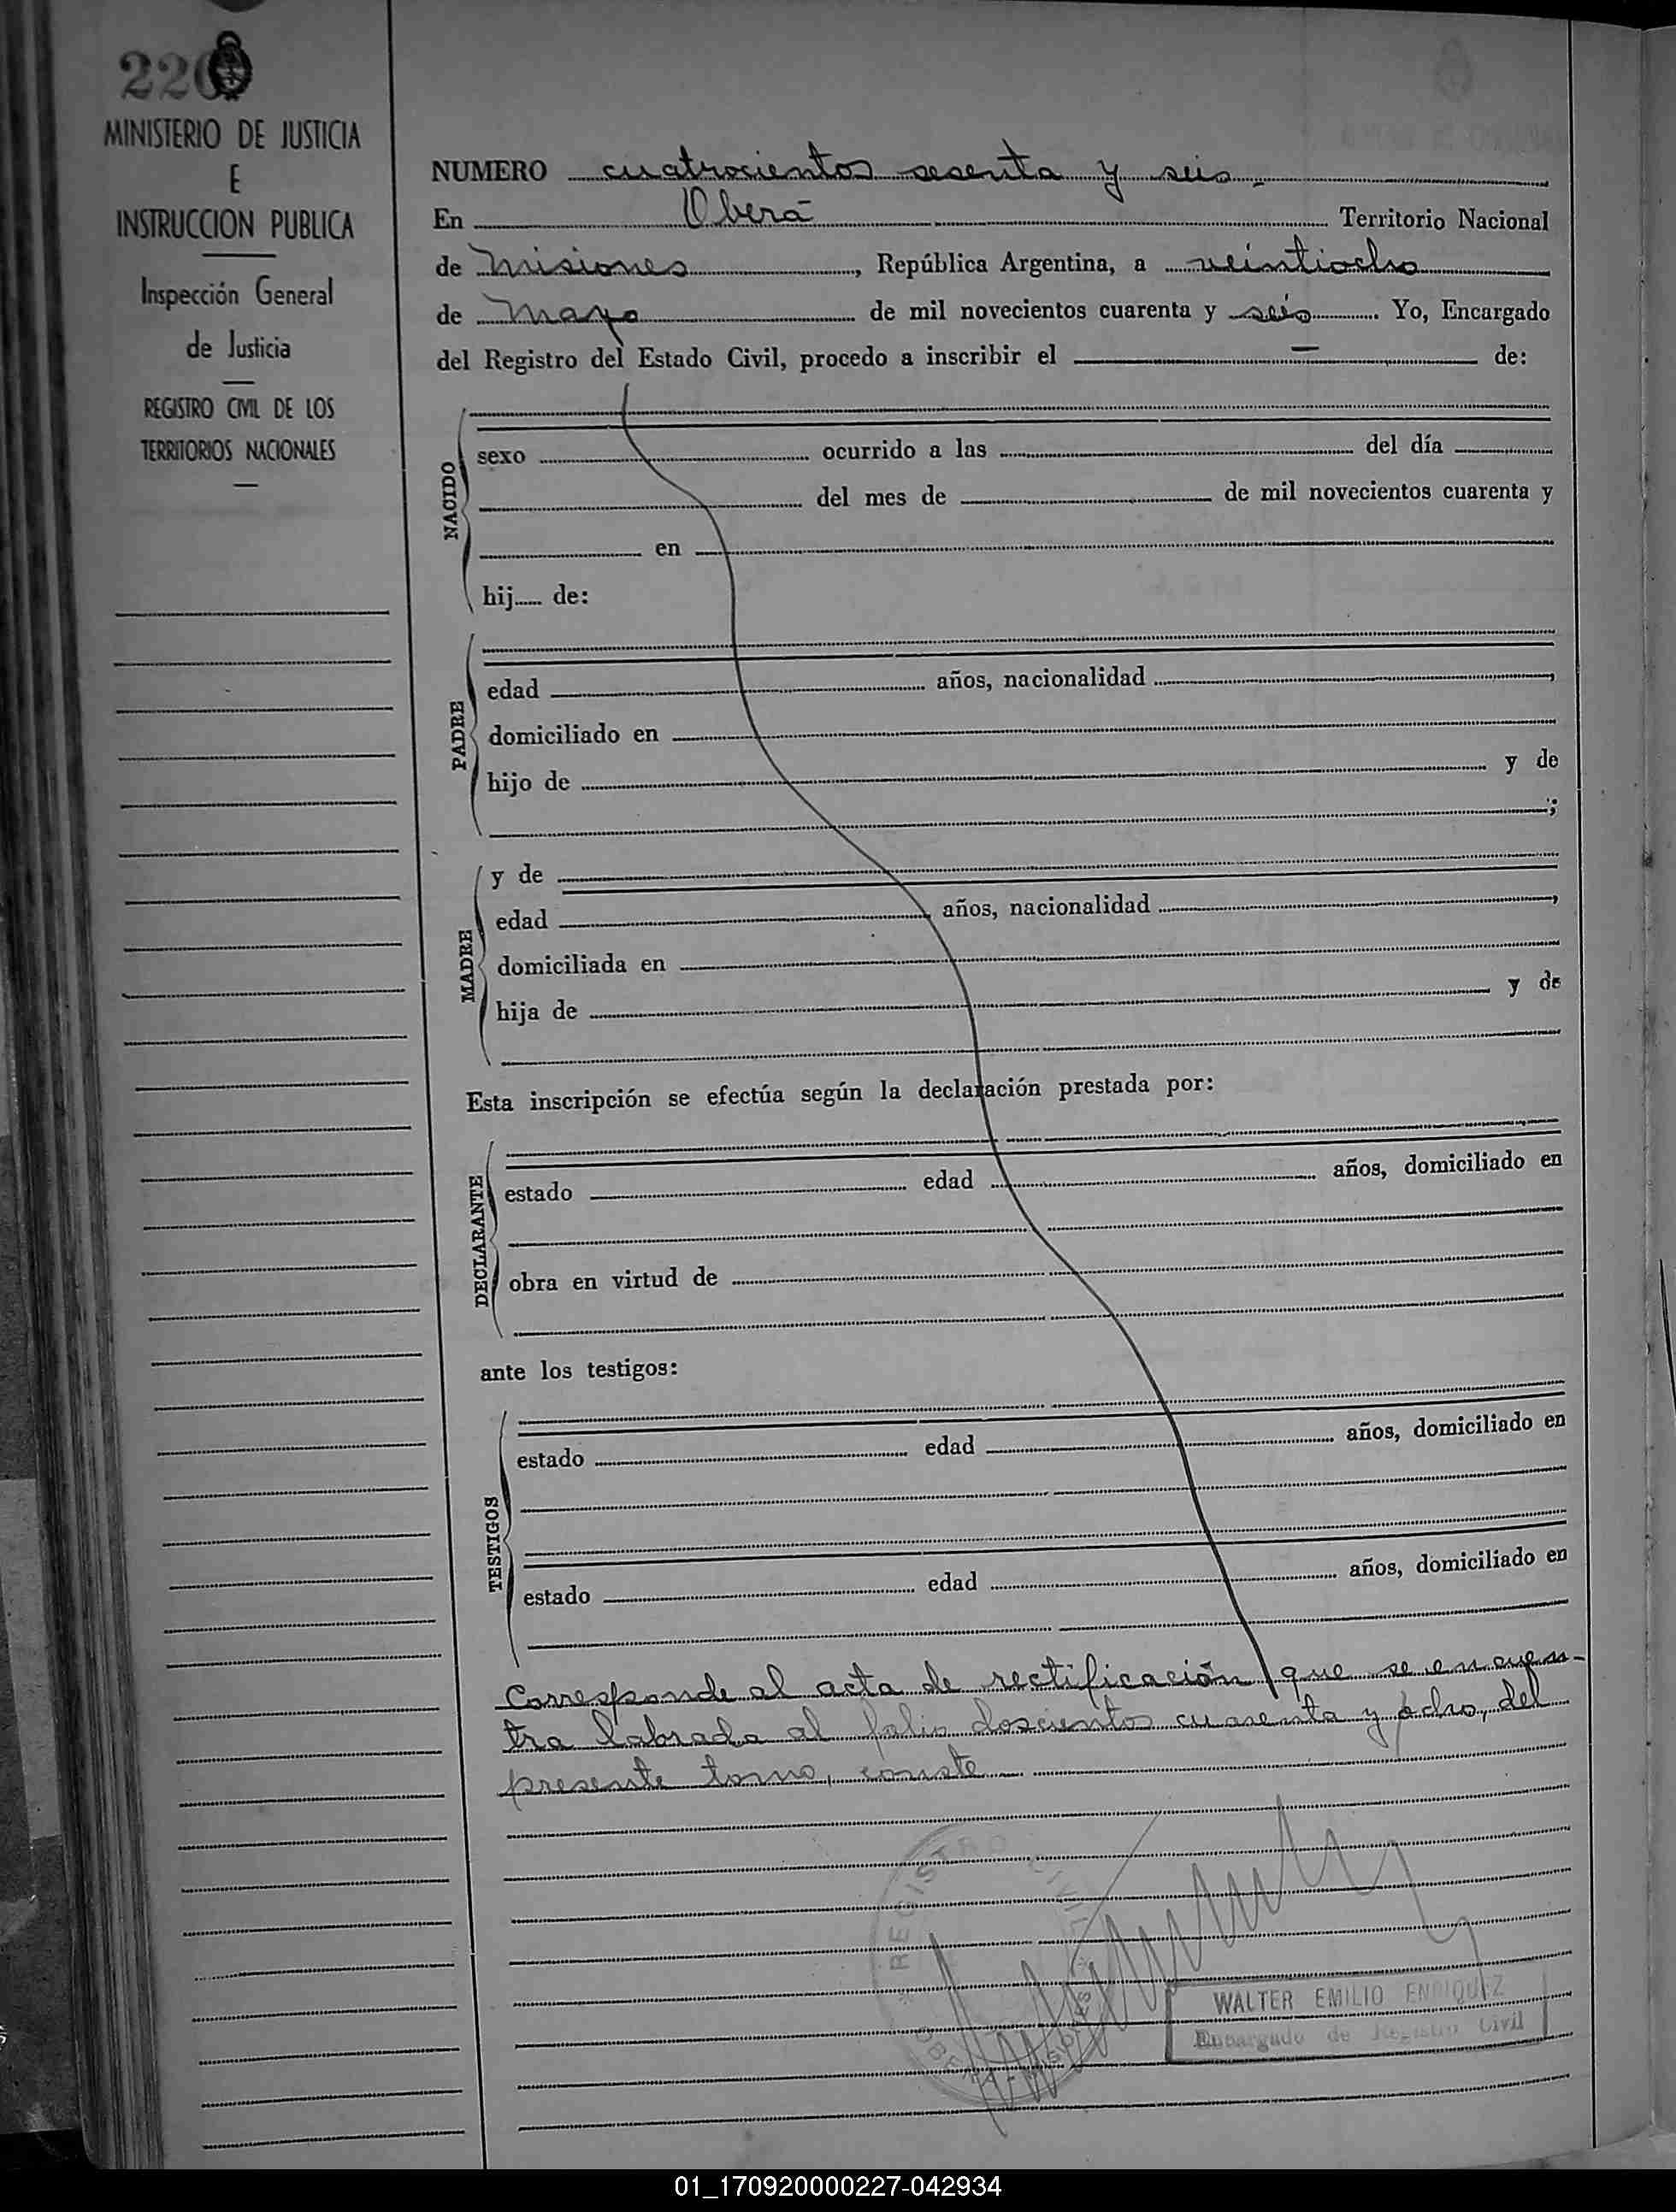 220
MINISTERIO DE JUSTICIA
E
INSTRUCCION PUBLICA
Inspección General
de Justicia
REGISTRO CIVIL DE LOS
TERRITORIOS NACIONALES
NUMERO cuatrocientos sesenta y seis.-
En Oberá Territorio Nacional
de Misiones, República Argentina, a veintiocho
de Mayo de mil novecientos cuarenta y seis. Yo, Encargado
del Registro del Estado Civil, procedo a inscribir el — de:
NACIDO
sexo ocurrido a las del día
del mes de de mil novecientos cuarenta y
en
hij de:
PADRE
edad años, nacionalidad ,
domiciliado en
hijo de y de
;
MADRE
y de
edad años, nacionalidad ,
domiciliada en
hija de y de
Esta inscripción se efectúa según la declaración prestada por:
DECLARANTE
estado edad años, domiciliado en
obra en virtud de
ante los testigos:
TESTIGOS
estado edad años, domiciliado en
estado edad años, domiciliado en
Corresponde al acta de rectificación que se encuen-
tra labrada al folio doscientos cuarenta y ocho, del
presente tomo, conste
REGISTRO CIVIL
OBERA
WALTER EMILIO ENRIQUEZ
Encargado de Registro Civil
01_170920000227-042934